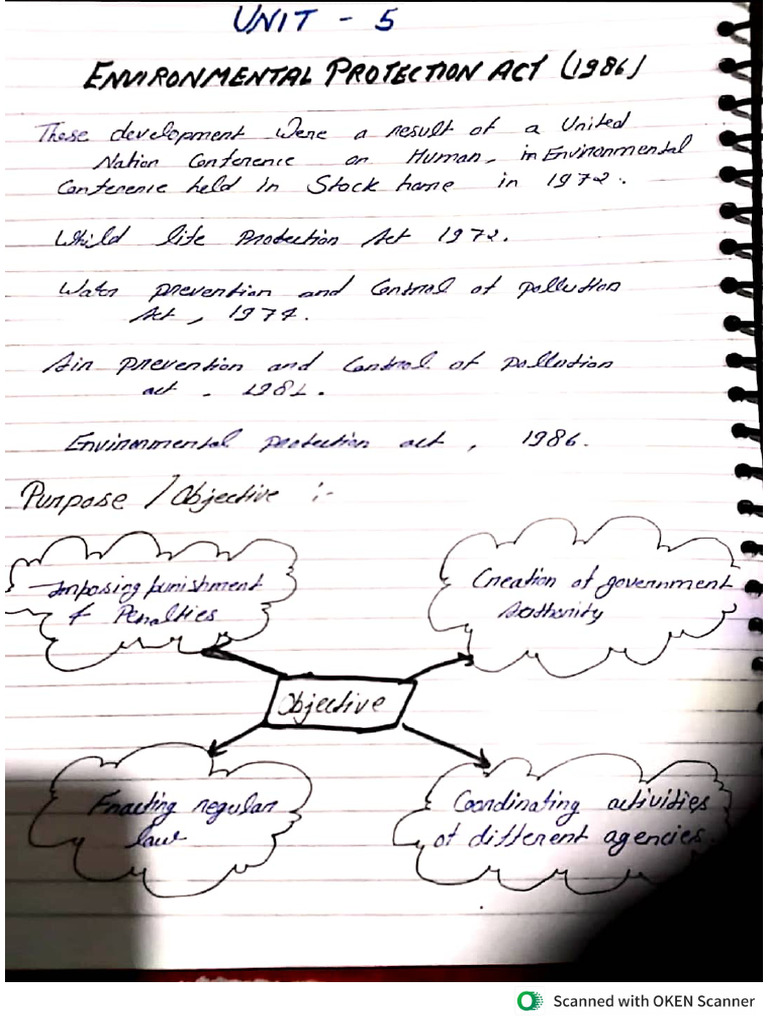 UNIT - 5
ENVIRONMENTAL PROTECTION ACT (1986)
These development were a result of a United
Nation Conference on Human, in Environmental
Conference held in Stock home in 1972.
Whild life Protection Act 1972.
Water prevention and Control of pollution
Act, 1974.
Air prevention and Control of pollution
act. 1981.
Environmental protection act, 1986.
Purpose / Objective :-
Imposing punishment
& Penalties
Creation of government
Authority
Objective
Enacting regular
law
Coordinating activities
of different agencies.
Scanned with OKEN Scanner